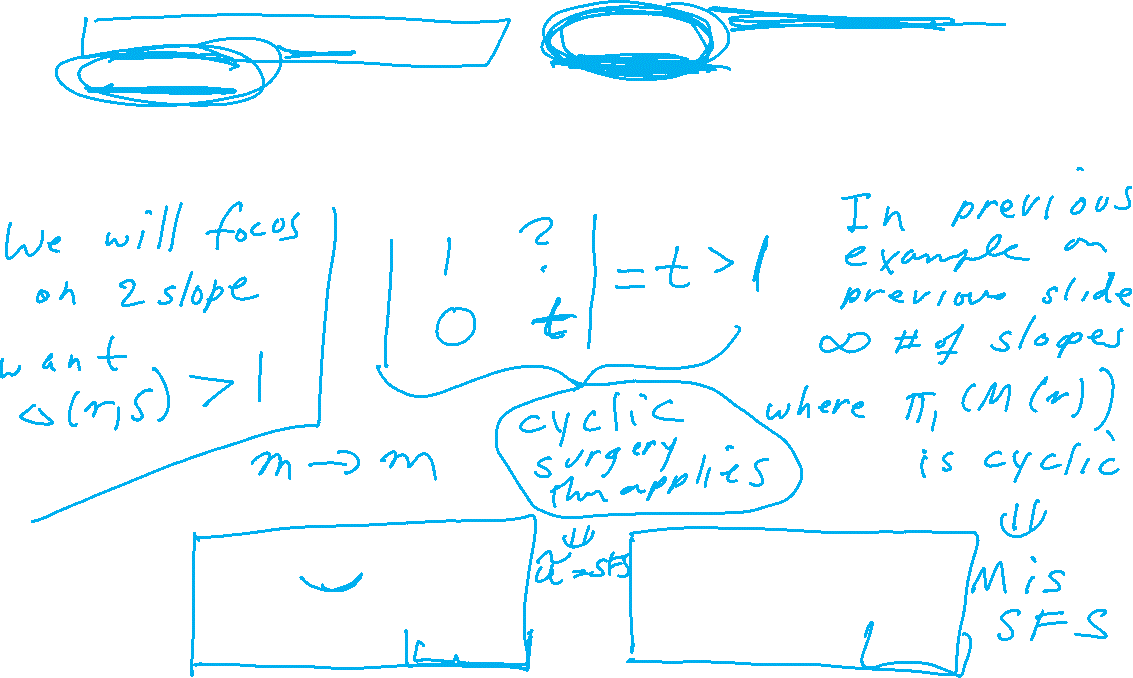 We will focos
on 2 slope
want
Δ(r,s) > 1
| 1 ? |
| 0 t | = t > 1
cyclic
surgery
thm applies
⇓
m → m
In previous
example on
previous slide
∞ # of slopes
where π₁(M(r))
is cyclic
⇓
M is
SFS